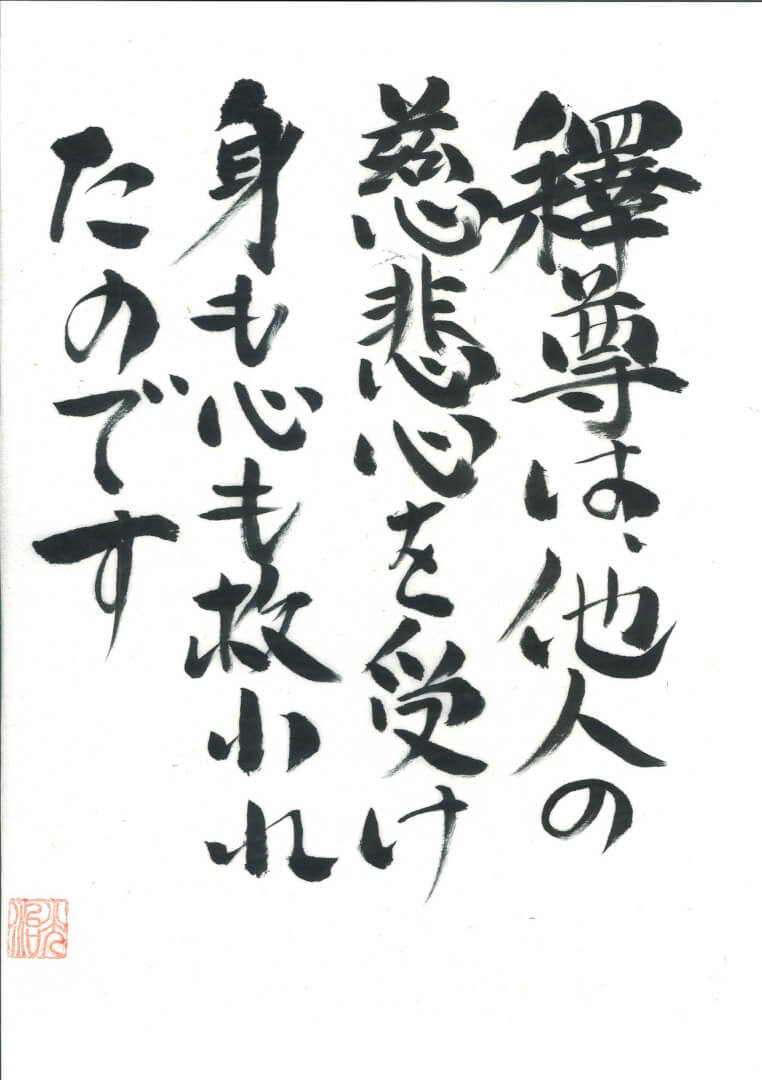 釋尊は、他人の
慈悲心を受け
身も心も救われ
たのです